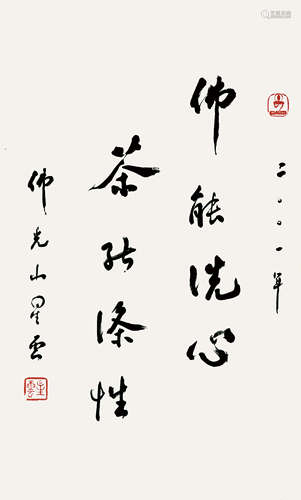 二〇〇一年
佛能洗心
茶能涤性
佛光山星雲